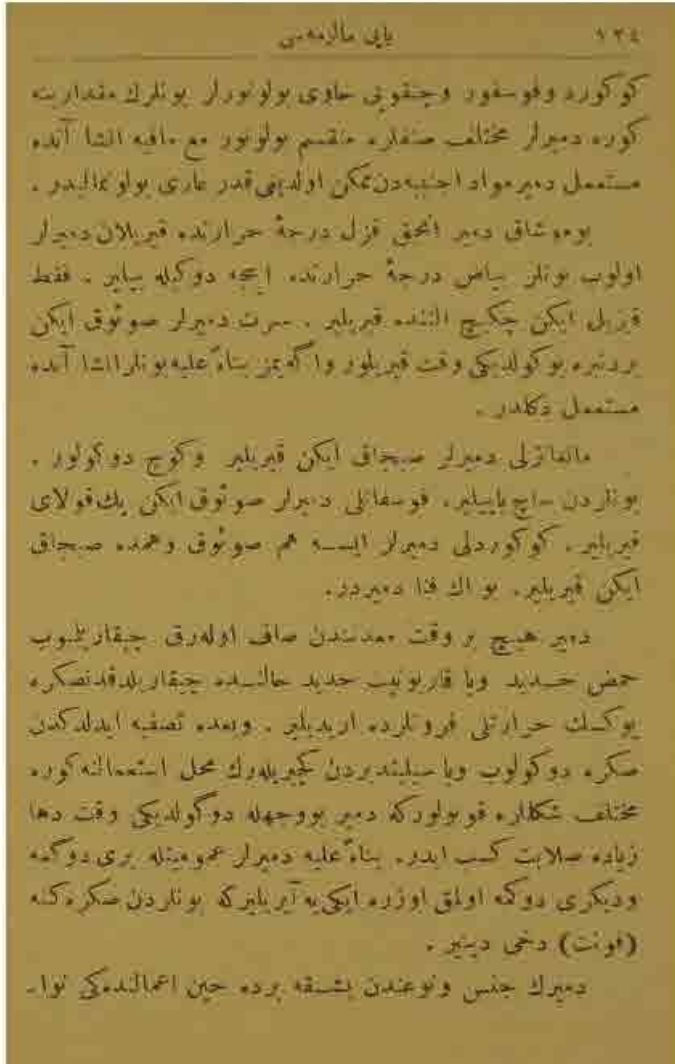 ١٢٤ یاپی مالزمه‌سی
كوكورد وفوسفور وچنقویی حاوی بولونورلر بونلرك مقدارینه
كوره دمیرلر مختلف صنفلره منقسم بولونور مع مافیه انشا آنده
مستعمل دمیر مواد اجنبیه‌دن ممكن اولدیغی قدر عاری بولونمالیدر .
یوموشاق دمیر انجق قزل درجهٔ حرارتده قیریلان دمیرلر
اولوب بونلر بیاض درجهٔ حرارتده ایجه دوكیله بیلیر . فقط
قیزیل ایكن چكیچ التنده قیریلیر . سرت دمیرلر صوئوق ایكن
بردنبره بوكولدیكی وقت قیریلور واكه‌یمز بناءً علیه بونلر انشا آنده
مستعمل دكلدر .
مانغانزلی دمیرلر صیجاق ایكن قیریلیر وكوج دوكولور .
بونلردن ساچ یاپیلیر. فوسفاتلی دمیرلر صوئوق ایكن پك قولای
قیریلیر. كوكوردلی دمیرلر ایسه هم صوئوق وهمده صیجاق
ایكن قیریلیر. بو اك فنا دمیردر.
دمیر هیچ بر وقت معدنندن صاف اوله‌رق چیقاریلمیوب
حمض حدید ویا قاربونیت حدید حالنده چیقاریلدقدنصكره
یوكسك حرارتلی فرونلرده اریدیلیر . وبعده تصفیه ایدلدكدن
صكره دوكولوب ویا سیلیندیردن كچیریله‌رك محل استعمالنه كوره
مختلف شكللره قویولوركه دمیر بووجهله دوگولدیكی وقت دها
زیاده صلابت كسب ایدر. بناءً علیه دمیرلر عمومیتله بری دوگمه
ودیكری دوكمه اولمق اوزره ایكی‌یه آیریلیركه بونلردن صكره‌كنه
(فونت) دخی دینیر .
دمیرك جنس ونوعندن بشقه برده حین اعمالنده‌كی نوا-